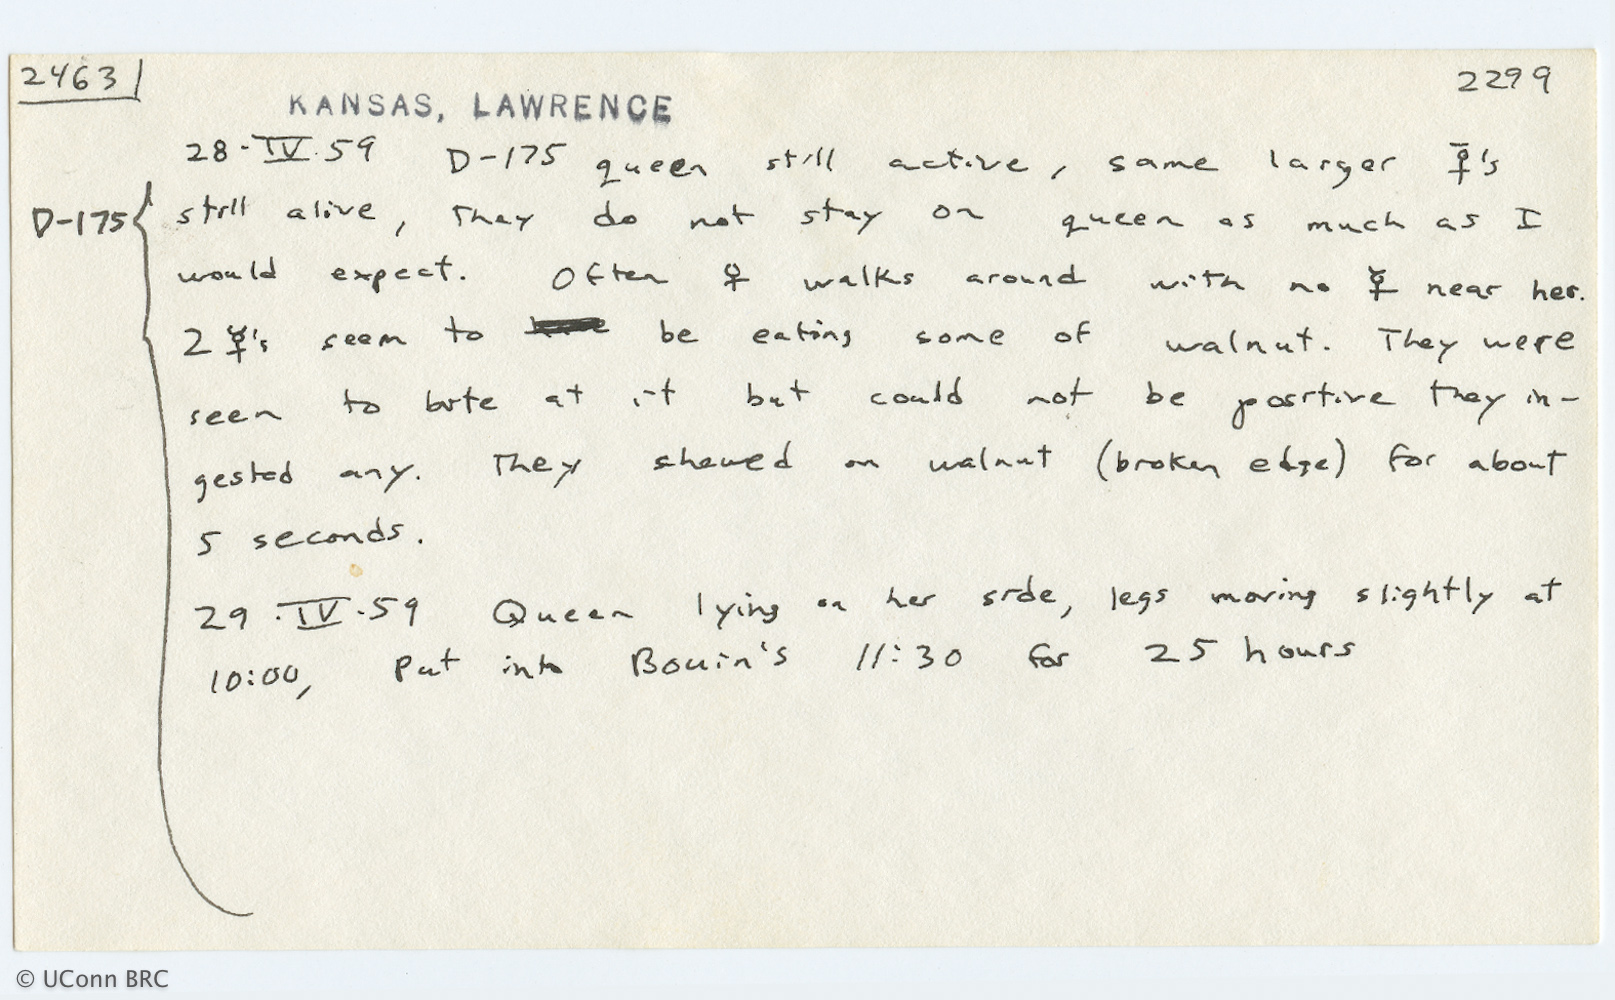 2463
2299
KANSAS, LAWRENCE
28·IV·59 D-175 queen still active, same larger ☿'s
D-175 { still alive, They do not stay on queen as much as I
would expect. Often ♀ walks around with no ☿ near her.
2 ☿'s seem to be eating some of walnut. They were
seen to bite at it but could not be positive they in-
gested any. They chewed on walnut (broken edge) for about
5 seconds.
29·IV·59 Queen lying on her side, legs moving slightly at
10:00, Put into Bouin's 11:30 for 25 hours
© UConn BRC